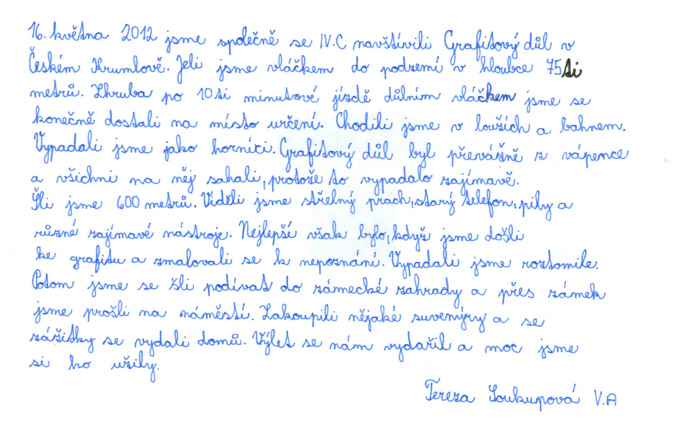 16. května 2012 jsme společně se IV.C navštívili Grafitový důl v
Českém Krumlově. Jeli jsme vláčkem do podzemí v hloubce 75ti
metrů. Zhruba po 10ti minutové jízdě důlním vláčkem jsme se
konečně dostali na místo určení. Chodili jsme v loužích a bahnem.
Vypadali jsme jako horníci. Grafitový důl byl převážně z vápence
a všichni na něj sahali, protože to vypadalo zajímavě.
Šli jsme 600 metrů. Viděli jsme střelný prach, starý telefon, pily a
různé zajímavé nástroje. Nejlepší však bylo, když jsme došli
ke grafitu a zmalovali se k nepoznání. Vypadali jsme roztomile.
Potom jsme se šli podívat do zámecké zahrady a přes zámek
jsme prošli na náměstí. Zakoupili nějaké suvenýry a se
zážitky se vydali domů. Výlet se nám vydařil a moc jsme
si ho užily.
Tereza Soukupová V.A